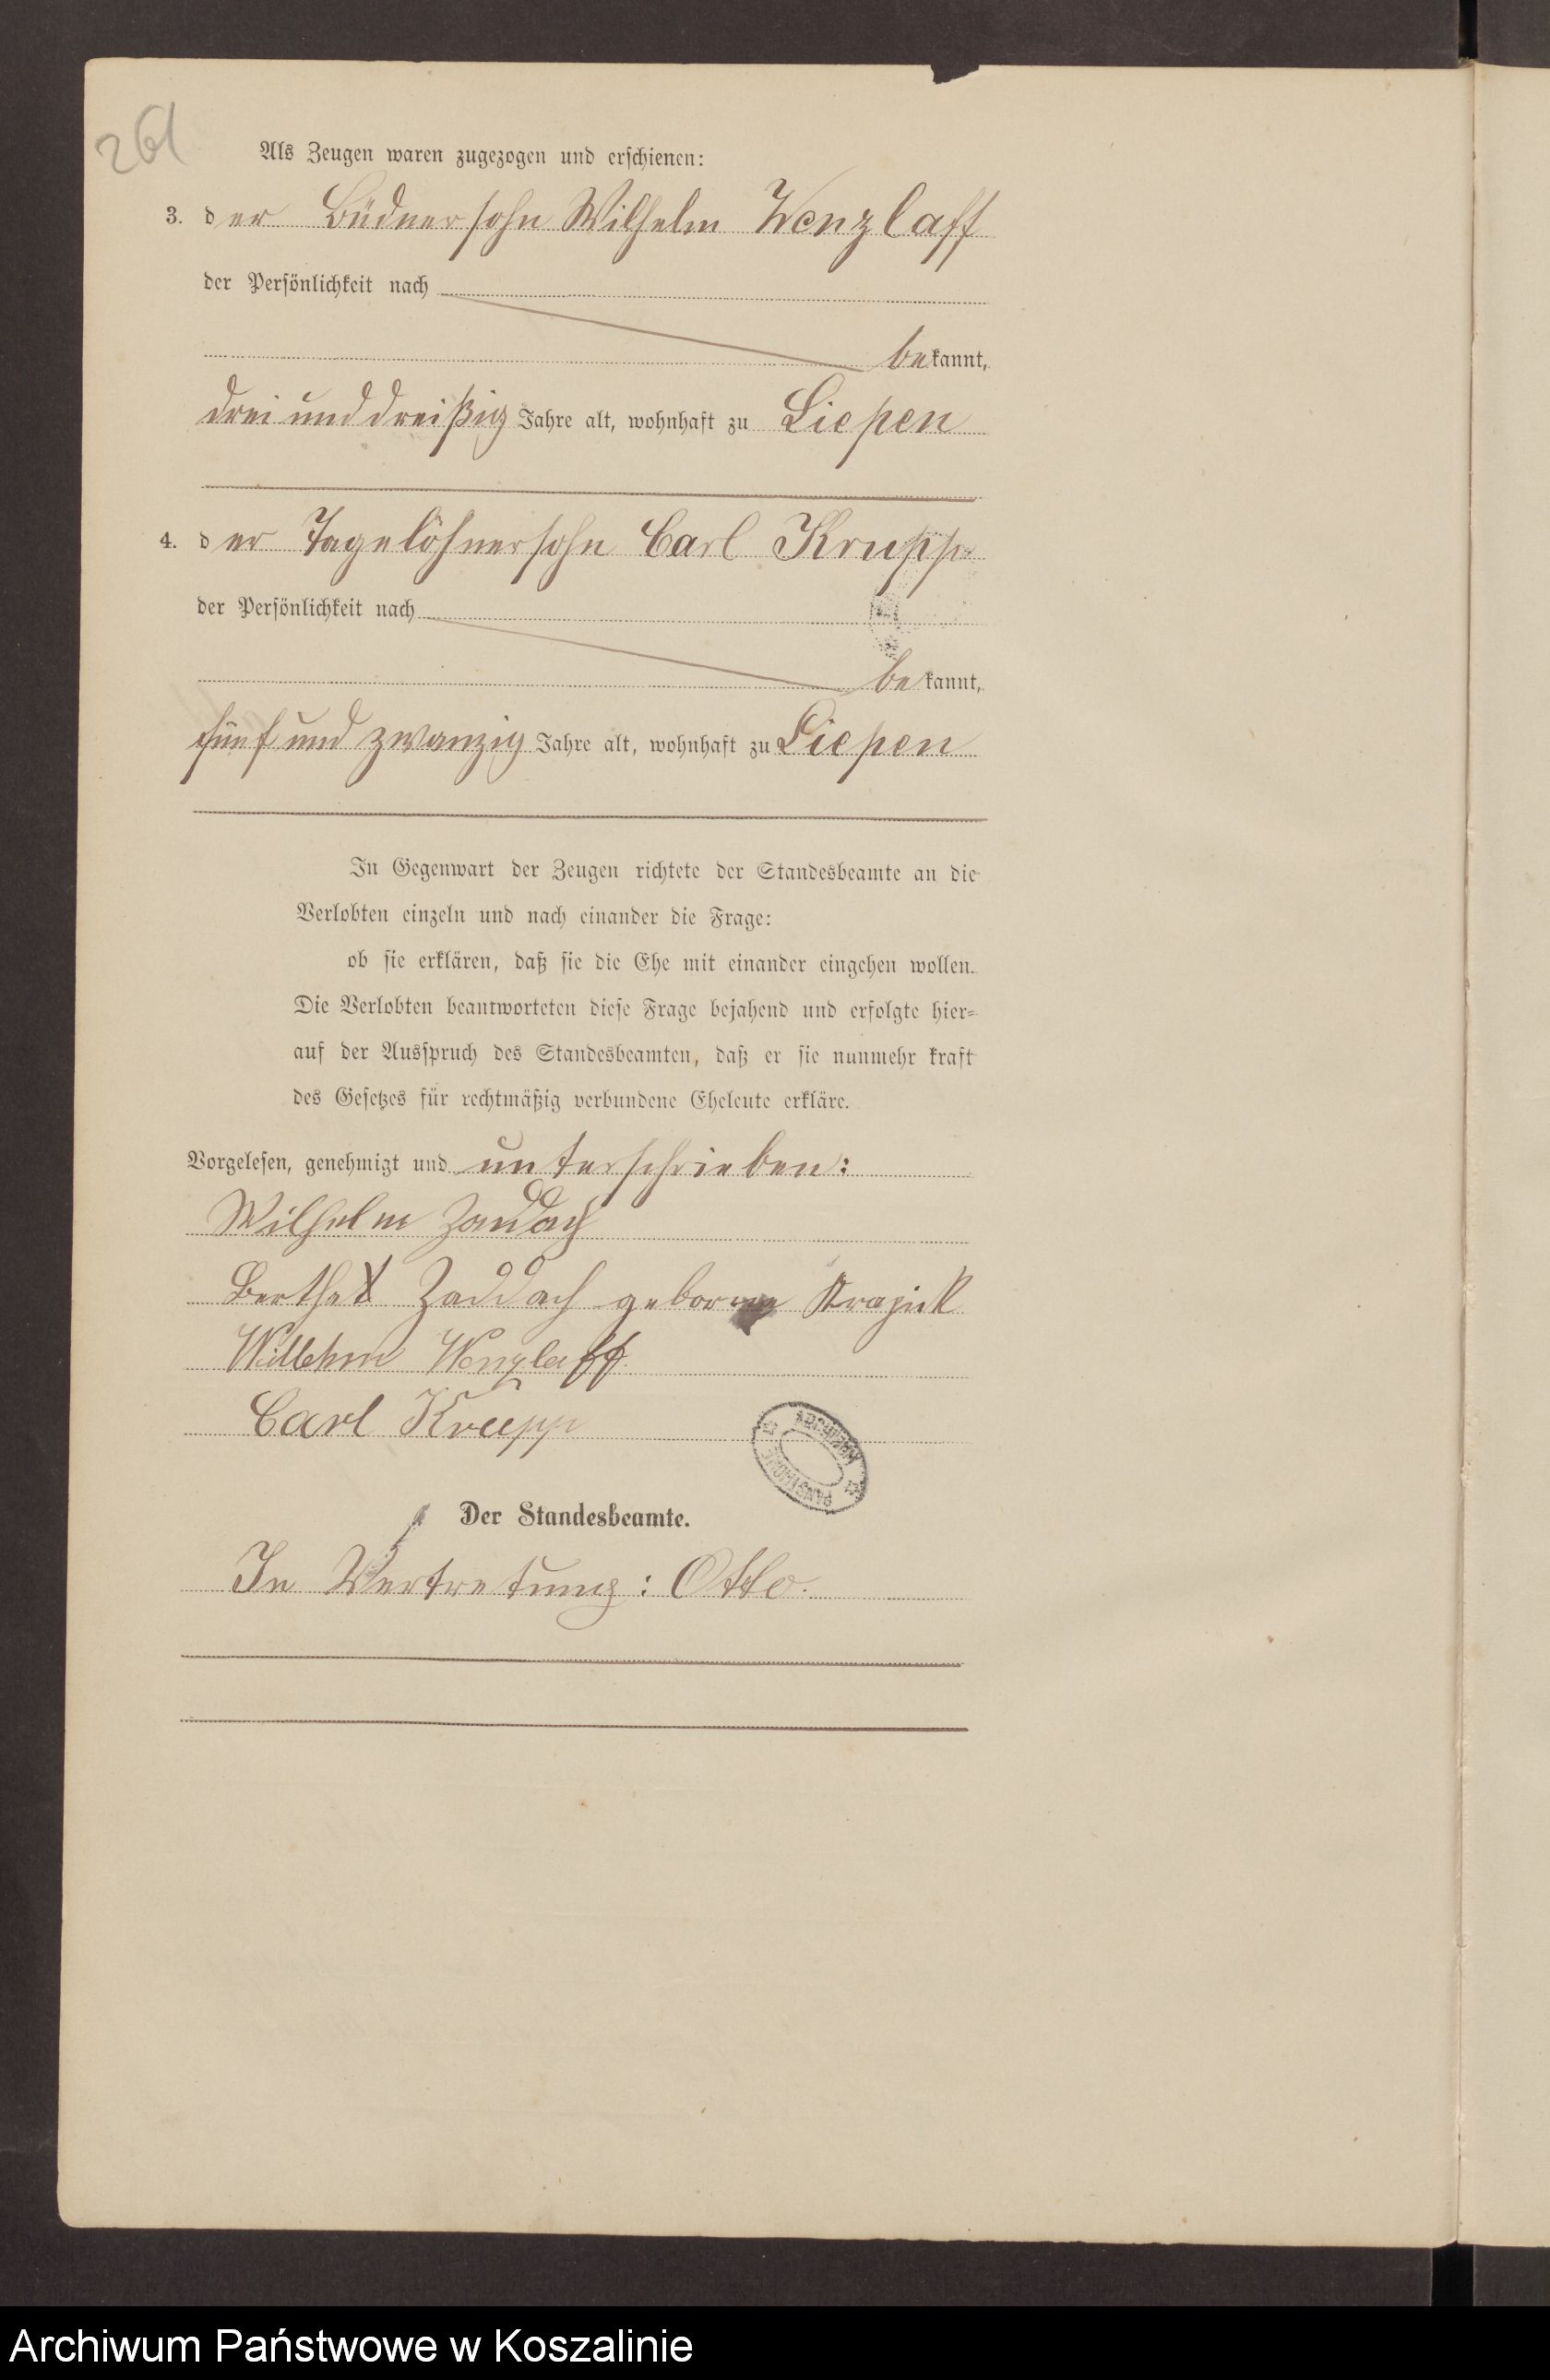 261
Als Zeugen waren zugezogen und erschienen:
3. der Büdnersohn Wilhelm Wenzlaff
der Persönlichkeit nach
bekannt,
drei und dreißig Jahre alt, wohnhaft zu Liepen
4. der Tagelöhnersohn Carl Krupp
der Persönlichkeit nach
bekannt,
fünf und zwanzig Jahre alt, wohnhaft zu Liepen
In Gegenwart der Zeugen richtete der Standesbeamte an die
Verlobten einzeln und nach einander die Frage:
ob sie erklären, daß sie die Ehe mit einander eingehen wollen.
Die Verlobten beantworteten diese Frage bejahend und erfolgte hier=
auf der Ausspruch des Standesbeamten, daß er sie nunmehr kraft
des Gesetzes für rechtmäßig verbundene Eheleute erkläre.
Vorgelesen, genehmigt und unterschrieben:
Wilhelm Zaddach
Zaddach geborne
Willehm Wenzlaff
Carl Krupp
ARCHIWUM PAŃSTWOWE
Der Standesbeamte.
In Vertretung: Otto.
Archiwum Państwowe w Koszalinie